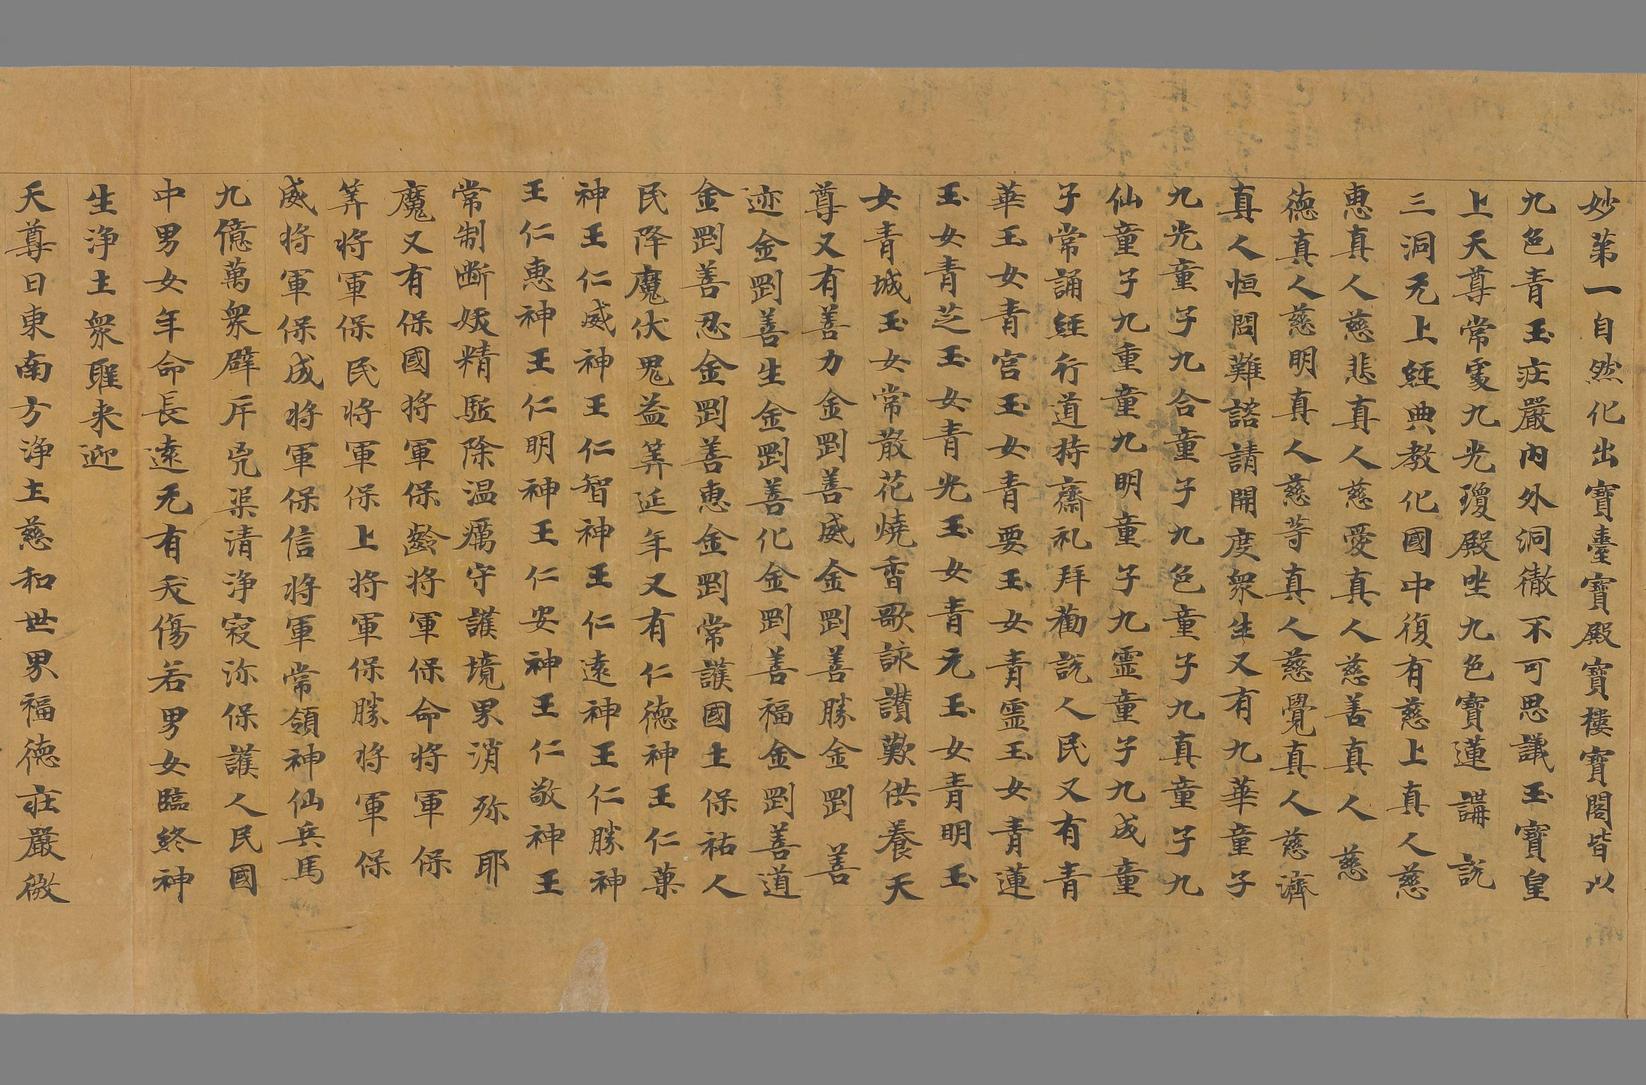 妙第一自然化出寶臺寶殿寶樓寶閣皆以
九色青玉庄嚴內外洞徹不可思議玉寶皇
上天尊常處九光瓊殿坐九色寶蓮講說
三洞无上經典教化國中復有慈上真人慈
惠真人慈悲真人慈愛真人慈善真人慈
德真人慈明真人慈等真人慈覺真人慈濟
真人恒問難諮請開度衆生又有九華童子
九光童子九合童子九色童子九真童子九
仙童子九重童九明童子九靈童子九成童
子常誦經行道持齋礼拜勸說人民又有青
華玉女青宮玉女青要玉女青靈玉女青蓮
玉女青芝玉女青光玉女青元玉女青明玉
女青城玉女常散花燒香歌詠讚歎供養天
尊又有善力金剛善威金剛善勝金剛善
迹金剛善生金剛善化金剛善福金剛善道
金剛善忍金剛善惠金剛常護國土保祐人
民降魔伏鬼益筭延年又有仁德神王仁葉
神王仁威神王仁智神王仁遠神王仁勝神
王仁惠神王仁明神王仁安神王仁敬神王
常制斷妖精駈除温癘守護境界消弥耶
魔又有保國將軍保齡將軍保命將軍保
筭將軍保民將軍保上將軍保勝將軍保
威將軍保成將軍保信將軍常領神仙兵馬
九億萬衆辟斥兇渠清淨寂弥保護人民國
中男女年命長遠无有夭傷若男女臨終神
生淨土衆聖来迎
天尊曰東南方淨土慈和世界福德莊嚴微